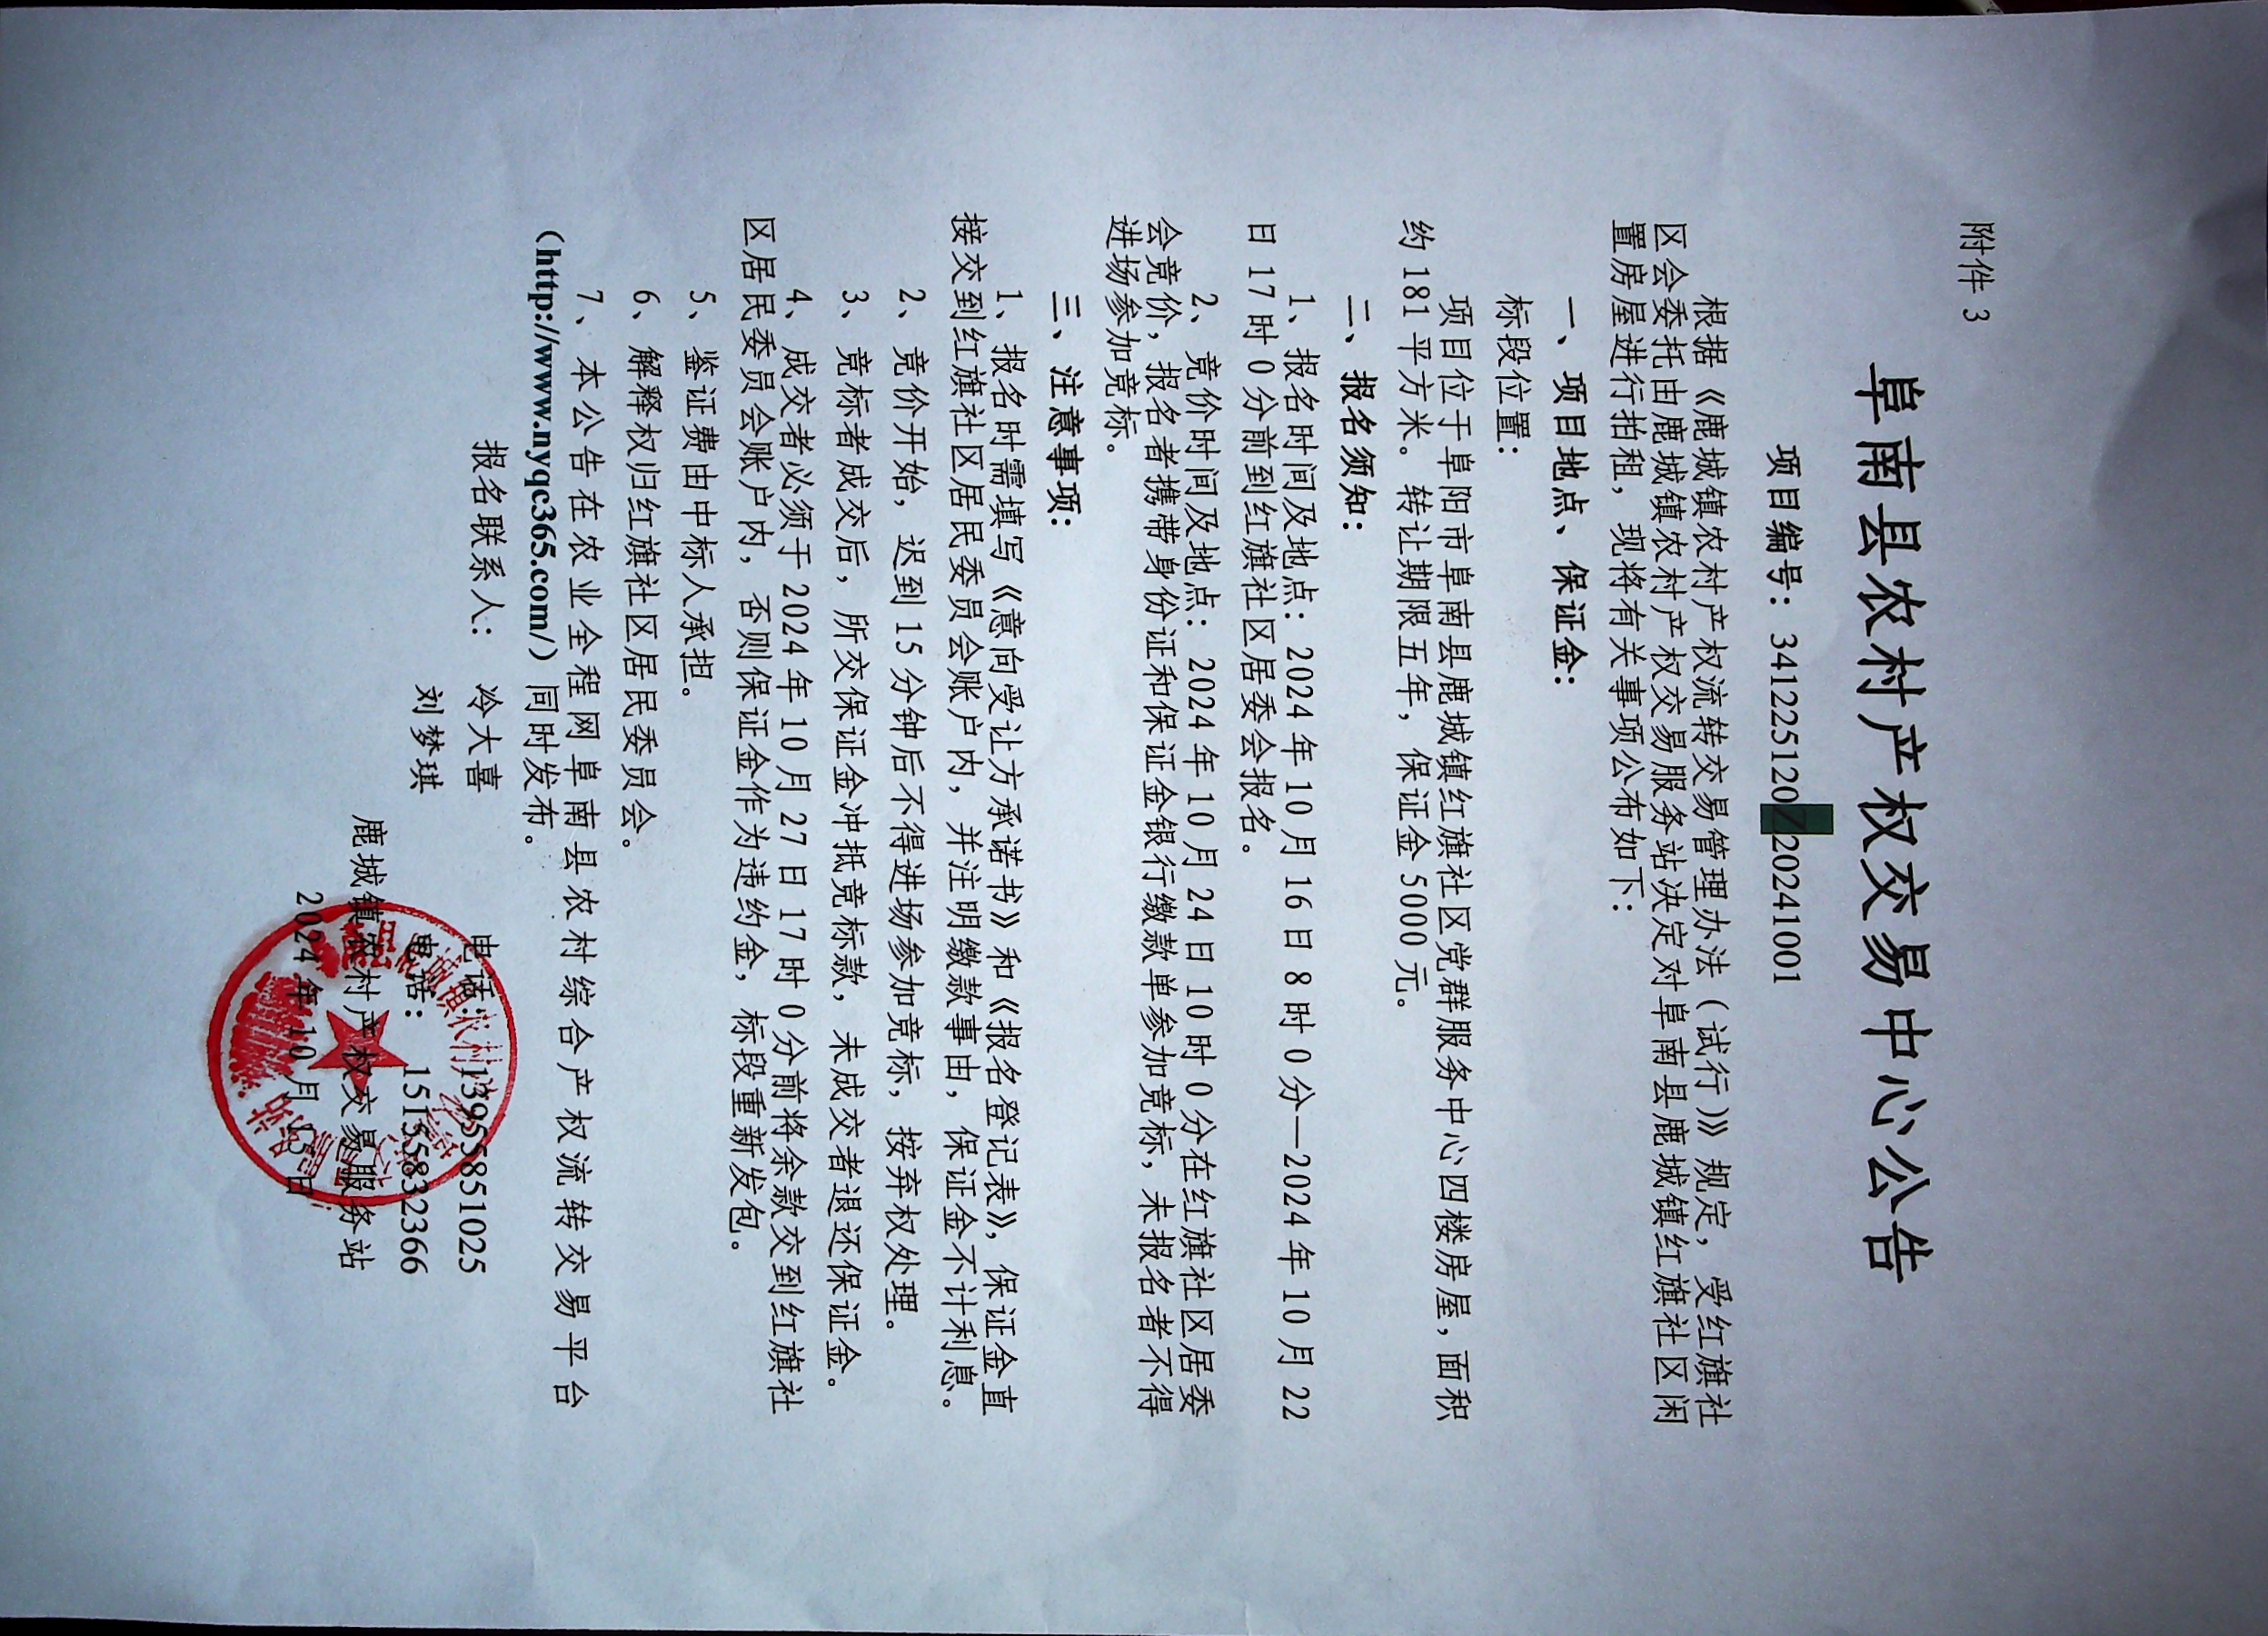 附件 3
阜南县农村产权交易中心公告
项目编号：341225120Z20241001
根据《鹿城镇农村产权流转交易管理办法（试行）》规定，受红旗社
区会委托由鹿城镇农村产权交易服务站决定对阜南县鹿城镇红旗社区闲
置房屋进行拍租，现将有关事项公布如下：
一、项目地点、保证金：
标段位置：
项目位于阜阳市阜南县鹿城镇红旗社区党群服务中心四楼房屋，面积
约 181 平方米。转让期限五年，保证金 5000 元。
二、报名须知：
1、报名时间及地点：2024 年 10 月 16 日 8 时 0 分—2024 年 10 月 22
日 17 时 0 分前到红旗社区居委会报名。
2、竞价时间及地点：2024 年 10 月 24 日 10 时 0 分在红旗社区居委
会竞价，报名者携带身份证和保证金银行缴款单参加竞标，未报名者不得
进场参加竞标。
三、注意事项：
1、报名时需填写《意向受让方承诺书》和《报名登记表》，保证金直
接交到红旗社区居民委员会账户内，并注明缴款事由，保证金不计利息。
2、竞价开始，迟到 15 分钟后不得进场参加竞标，按弃权处理。
3、竞标者成交后，所交保证金冲抵竞标款，未成交者退还保证金。
4、成交者必须于 2024 年 10 月 27 日 17 时 0 分前将余款交到红旗社
区居民委员会账户内，否则保证金作为违约金，标段重新发包。
5、鉴证费由中标人承担。
6、解释权归红旗社区居民委员会。
7、本公告在农业全程网阜南县农村综合产权流转交易平台
（http://www.nyqc365.com/）同时发布。
报名联系人： 冷大喜 电话：13955851025
刘梦琪 电话： 15155832366
鹿城镇农村产权交易服务站
2024 年 10 月 15 日